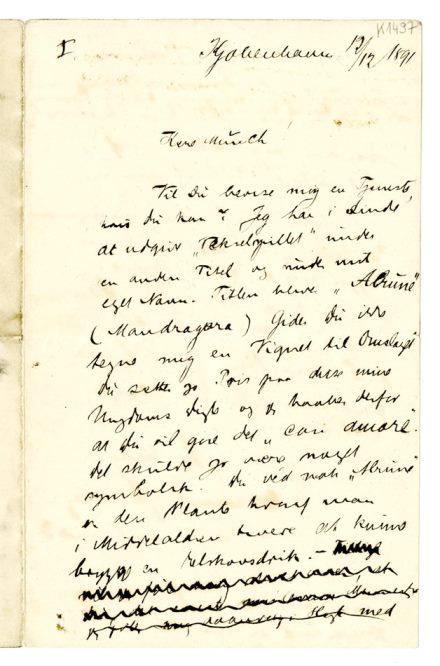 K1497
I.
Kjøbenhavn 12/12 1891
Kære Munch!
Vil Du bevise mig en Tjeneste,
hvis Du kan? Jeg har i Sinde
at udgive "Vexelspillet" under
en anden Titel og under mit
eget Navn. Titlen bliver "Alrune"
(Mandragora) Gider Du ikke
tegne mig en Vignet til Omslaget
Du sætter jo Pris paa disse mine
Ungdoms digte og jeg haaber derfor
at Du vil gøre det "con amore".
det skulde jo være noget
symbolsk. Du véd nok "Alrune"
er den Plante hvoraf man
i Middelalderen at kunne
brygge en Elskovsdrik. –
med